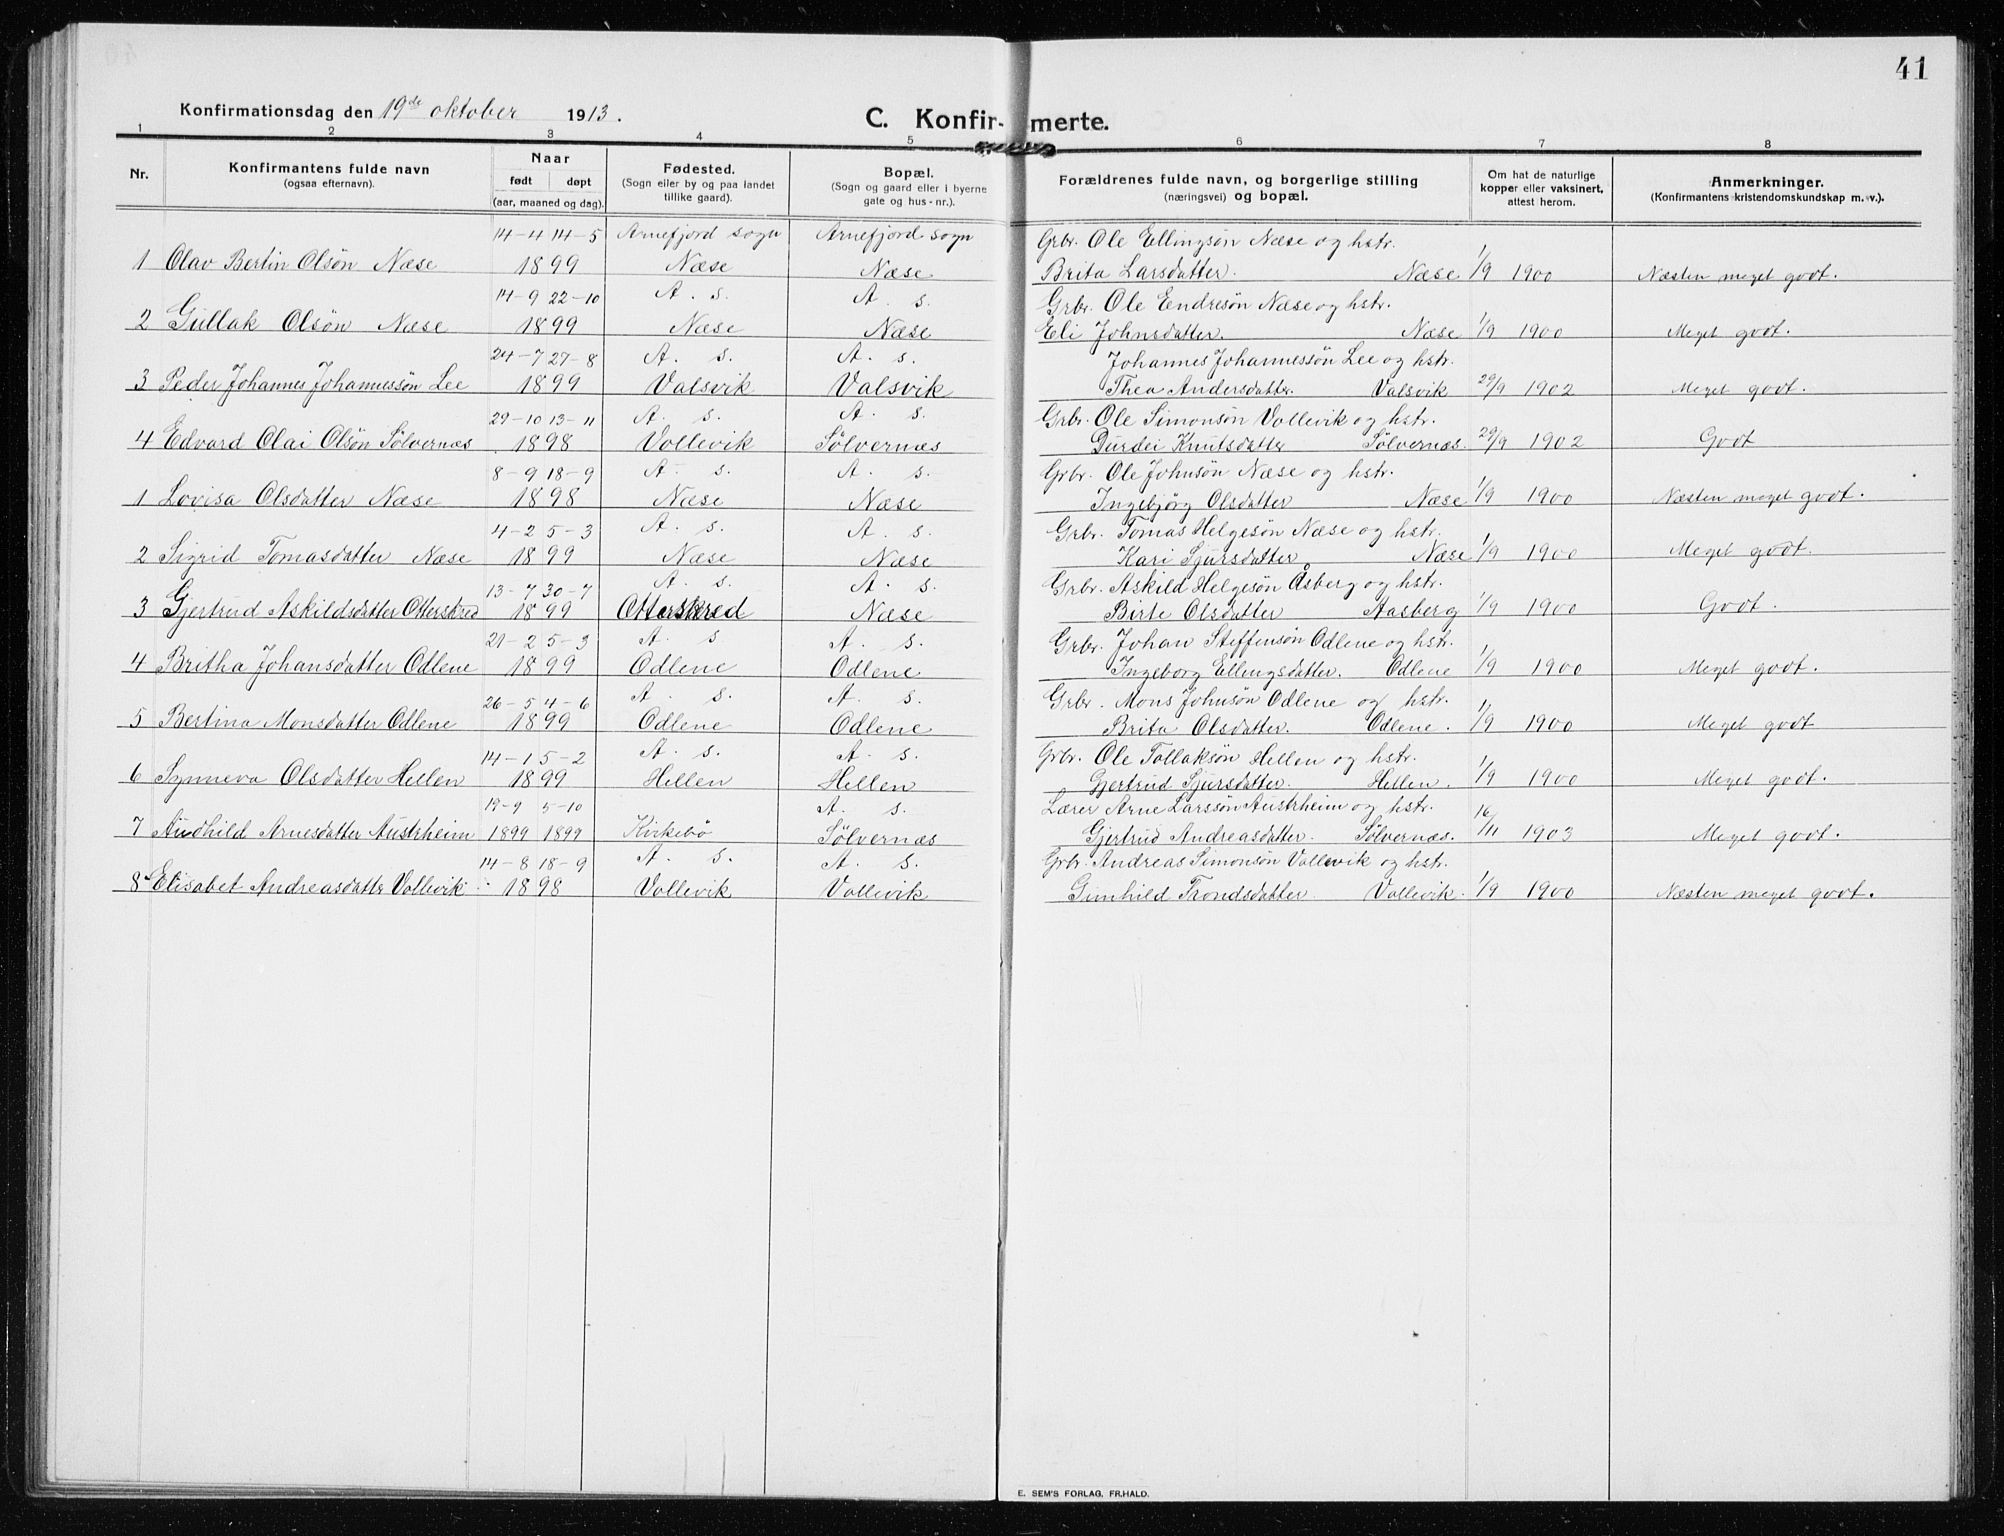 41
Konfirmationsdag den 19de oktober 1913.
C. Konfirmerte.
1 2 3 4 5 6 7 8
Nr.
Konfirmantens fulde navn
(ogsaa efternavn).
Naar
født døpt
(aar, maaned og dag).
Fødested.
(Sogn eller by og paa landet
tillike gaard).
Bopæl.
(Sogn og gaard eller i byerne
gate og hus-nr.).
Forældrenes fulde navn, og borgerlige stilling
(næringsvei) og bopæl.
Om hat de naturlige
kopper eller vaksinert,
attest herom.
Anmerkninger.
(Konfirmantens kristendomskundskap m. v.).
14-4 14-5 Arnefjord sogn Arnefjord sogn Grbr. Ole Ellingsøn Næse og hstr.
1 Olav Bertin Olsøn Næse 1899 Næse Næse Brita Larsdatter. Næse 1/9 1900 Næsten meget godt.
14-9 22-10 A. s. A. s. Grbr. Ole Endresøn Næse og hstr.
2 Gullak Olsøn Næse 1899 Næse Næse Eli Johnsdatter. Næse 1/9 1900 Meget godt.
24-7 27-8 A. s. A. s. Johannes Johannessøn Lee og hstr.
3 Peder Johannes Johannessøn Lee 1899 Valsvik Valsvik Thea Andersdatter. Valsvik 29/9 1902 Meget godt.
29-10 13-11 A. s. A. s. Grbr. Ole Simonsøn Vollevik og hstr.
4 Edvard Olai Olsøn Sølvernæs 1898 Vollevik Sølvernæs Durdei Knutsdatter Sølvernæs. 29/9 1902 Godt
8-9 18-9 A. s. A. s. Grbr. Ole Johnsøn Næse og hstr.
1 Lovisa Olsdatter Næse 1898 Næse Næse Ingebjørg Olsdatter Næse 1/9 1900 Næsten meget godt.
4-2 5-3 A. s. A. s. Grbr. Tomas Helgesøn Næse og hstr.
2 Sigrid Tomasdatter Næse 1899 Næse Næse Kari Sjursdatter Næse 1/9 1900 Meget godt.
13-7 30-7 A. s. A. s. Grbr. Askild Helgesøn Åsberg og hstr.
3 Gjertrud Askildsdatter Otterskred 1899 Otterskred Næse Birte Olsdatter Aasberg 1/9 1900 Godt.
21-2 5-3 A. s A. s. Grbr. Johan Steffensøn Odlene og hstr.
4 Britha Johansdatter Odlene 1899 Odlene Odlene Ingeborg Ellingsdatter. Odlene 1/9 1900 Meget godt.
26-5 4-6 A. s. A. s. Grbr. Mons Johnsøn Odlene og hstr.
5 Bertina Monsdatter Odlene 1899 Odlene Odlene Brita Olsdatter. Odlene. 1/9 1900 Meget godt
14-1 5-2 A. s. A. s. Grbr. Ole Tollaksøn Hellen og hstr.
6 Synneva Olsdatter Hellen 1899 Hellen Hellen Gjertrud Sjursdatter. Hellen. 1/9 1900 Meget godt.
19-9 5-10 A. s. Lærer Arne Larssøn Austrheim og hstr.
7 Audhild Arnesdatter Austrheim 1899 1899 Kirkebø Sølvernæs Gjertrud Andreasdatter. Sølvernæs. 16/11 1903 Meget godt.
14-8 18-9 A. s. A. s. Grbr. Andreas Simonsøn Vollevik og hstr.
8 Elisabet Andreasdattr Vollevik 1898 Vollevik Vollevik Gunhild Trondsdatter Vollevik. 1/9 1900 Næsten meget godt.
E. SEM'S FORLAG, FR.HALD.